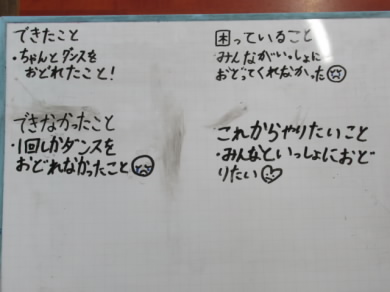 できたこと
・ちゃんとダンスを
おどれたこと！
できなかったこと
・1回しかダンスを
おどれなかったこと
困っていること
みんながいっしょに
おどってくれなかった
これからやりたいこと
・みんなといっしょにおど
りたい